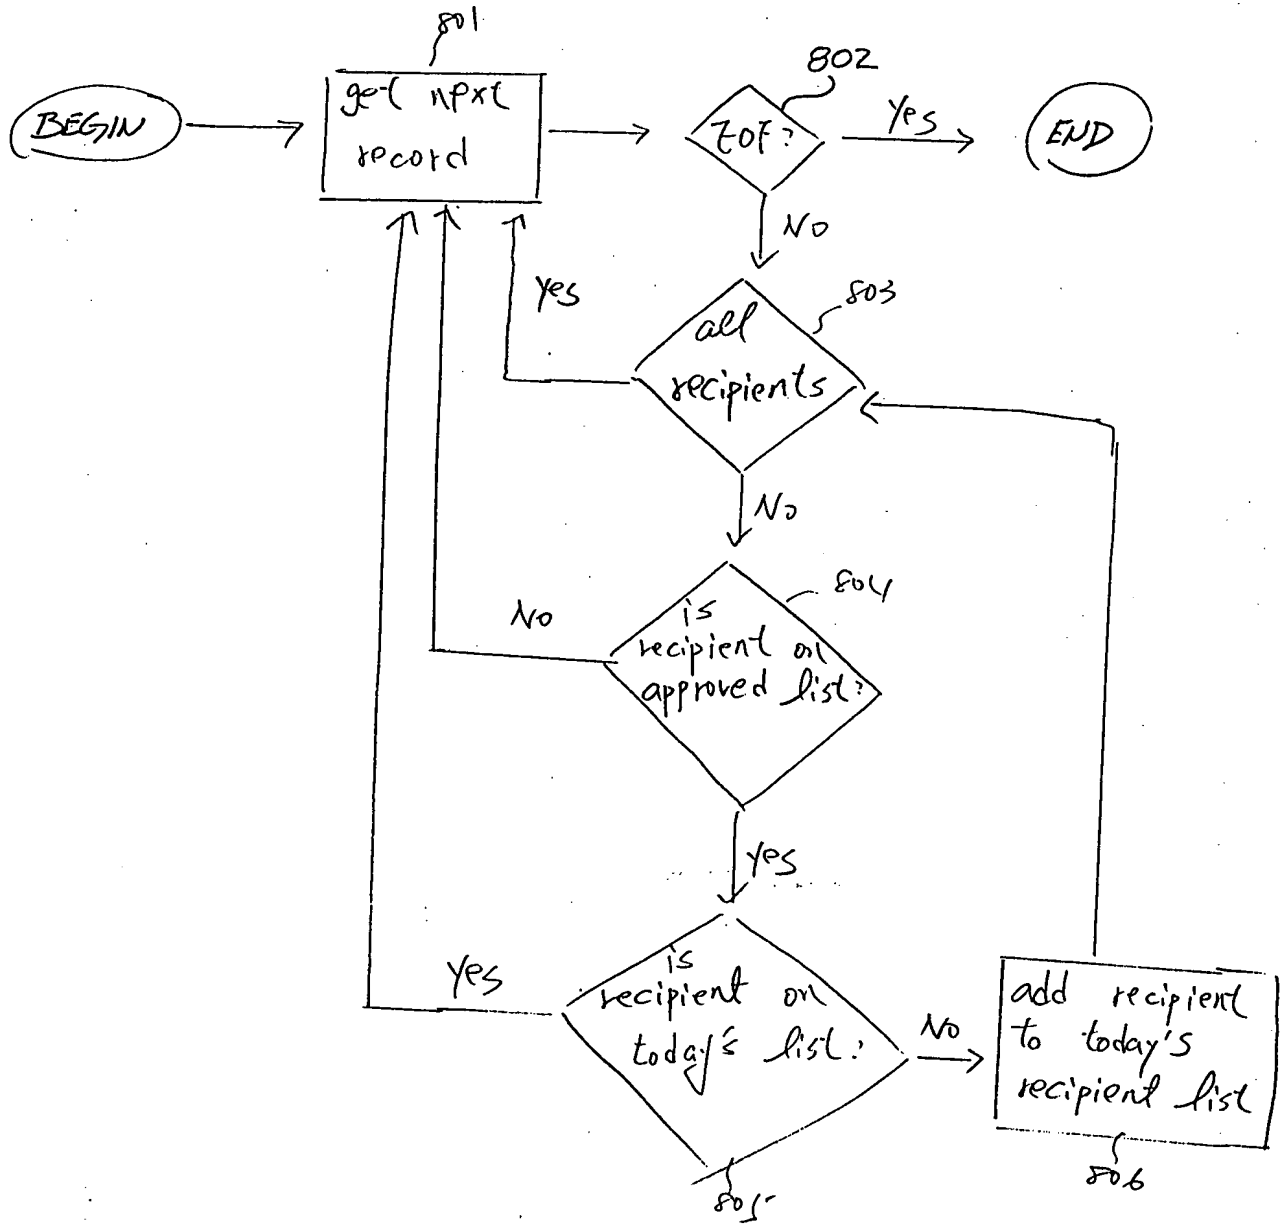 801
BEGIN
get next
record
802
EOF?
Yes
END
No
803
Yes
all
recipients
No
804
No
is
recipient on
approved list?
Yes
Yes
is
recipient on
today's list?
No
add recipient
to today's
recipient list
805
806